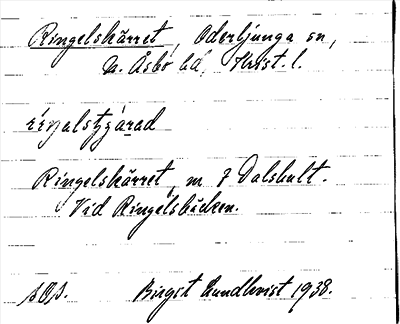 Ringelskärret, Oderljunga sn,
N. Åsbo hd, Krist. l.
Ringelskärret, m 7 Dalshult.
Vid Ringelsbäcken.
Birgit Lundkvist 1938.